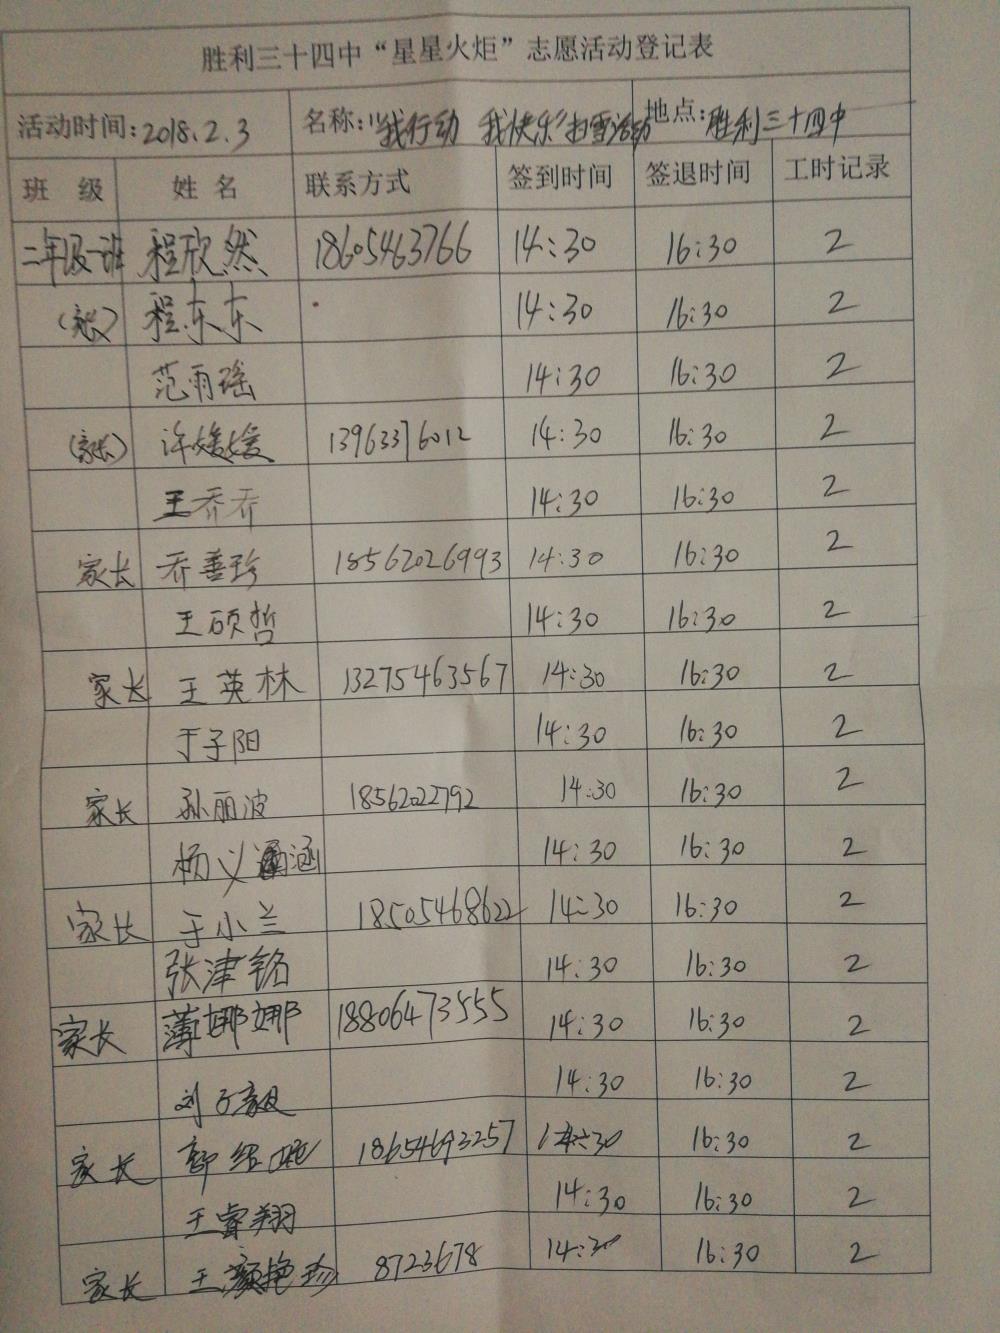 胜利三十四中“星星火炬”志愿活动登记表
活动时间:2018.2.3 名称:"我行动 我快乐"扫雪活动 地点:胜利三十四中
班 级 姓 名 联系方式 签到时间 签退时间 工时记录
二年级一班 程欣然 18605463766 14:30 16:30 2
(家长) 程东东 14:30 16:30 2
范雨瑶 14:30 16:30 2
(家长) 许媛媛 13963376012 14:30 16:30 2
王乔乔 14:30 16:30 2
家长 乔善珍 18562026993 14:30 16:30 2
王硕哲 14:30 16:30 2
家长 王英林 13275463567 14:30 16:30 2
于子阳 14:30 16:30 2
家长 孙丽波 18562022792 14:30 16:30 2
杨义涵 14:30 16:30 2
家长 于小兰 18505468622 14:30 16:30 2
张津铭 14:30 16:30 2
家长 薄娜娜 18806473555 14:30 16:30 2
刘子毅 14:30 16:30 2
家长 郭绍 18654693257 14:30 16:30 2
王睿翔 14:30 16:30 2
家长 王艳珍 8723678 14:30 16:30 2